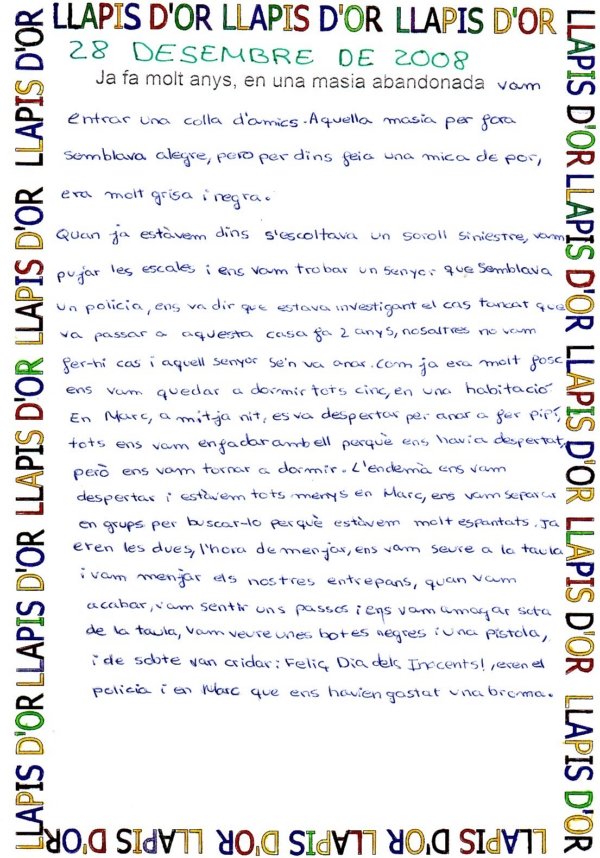 LLAPIS D'OR LLAPIS D'OR LLAPIS D'OR
28 DESEMBRE DE 2008
Ja fa molt anys, en una masia abandonada vam
entrar una colla d'amics. Aquella masia per fora
semblava alegre, pero per dins feia una mica de por,
era molt grisa i negra.
Quan ja estàvem dins s'escoltava un soroll siniestre, vam
pujar les escales i ens vam trobar un senyor que semblava
un policia, ens va dir que estava investigant el cas tancat que
va passar a aquesta casa fa 2 anys, nosaltres no vam
fer-hi cas i aquell senyor se'n va anar. Com ja era molt fosc
ens vam quedar a dormir tots cinc, en una habitació
En Marc, a mitja nit, es va despertar per anar a fer pipí,
tots ens vam enfadar amb ell perquè ens havia despertat,
però ens vam tornar a dormir. L'endemà ens vam
despertar i estàvem tots menys en Marc, ens vam separar
en grups per buscar-lo perquè estàvem molt espantats. Ja
eren les dues, l'hora de menjar, ens vam seure a la taula
i vam menjar els nostres entrepans, quan vam
acabar, vam sentir uns passos i ens vam amagar sota
de la taula, vam veure unes botes negres i una pistola,
i de sobte van cridar: Feliç Dia dels Inocents!, eren el
policia i en Marc que ens havien gastat una broma.
LLAPIS D'OR LLAPIS D'OR LLAPIS D'OR LLAPIS D'OR LLAPIS D'OR
LLAPIS D'OR LLAPIS D'OR LLAPIS D'OR LLAPIS D'OR LLAPIS D'OR
LLAPIS D'OR LLAPIS D'OR LLAPIS D'OR